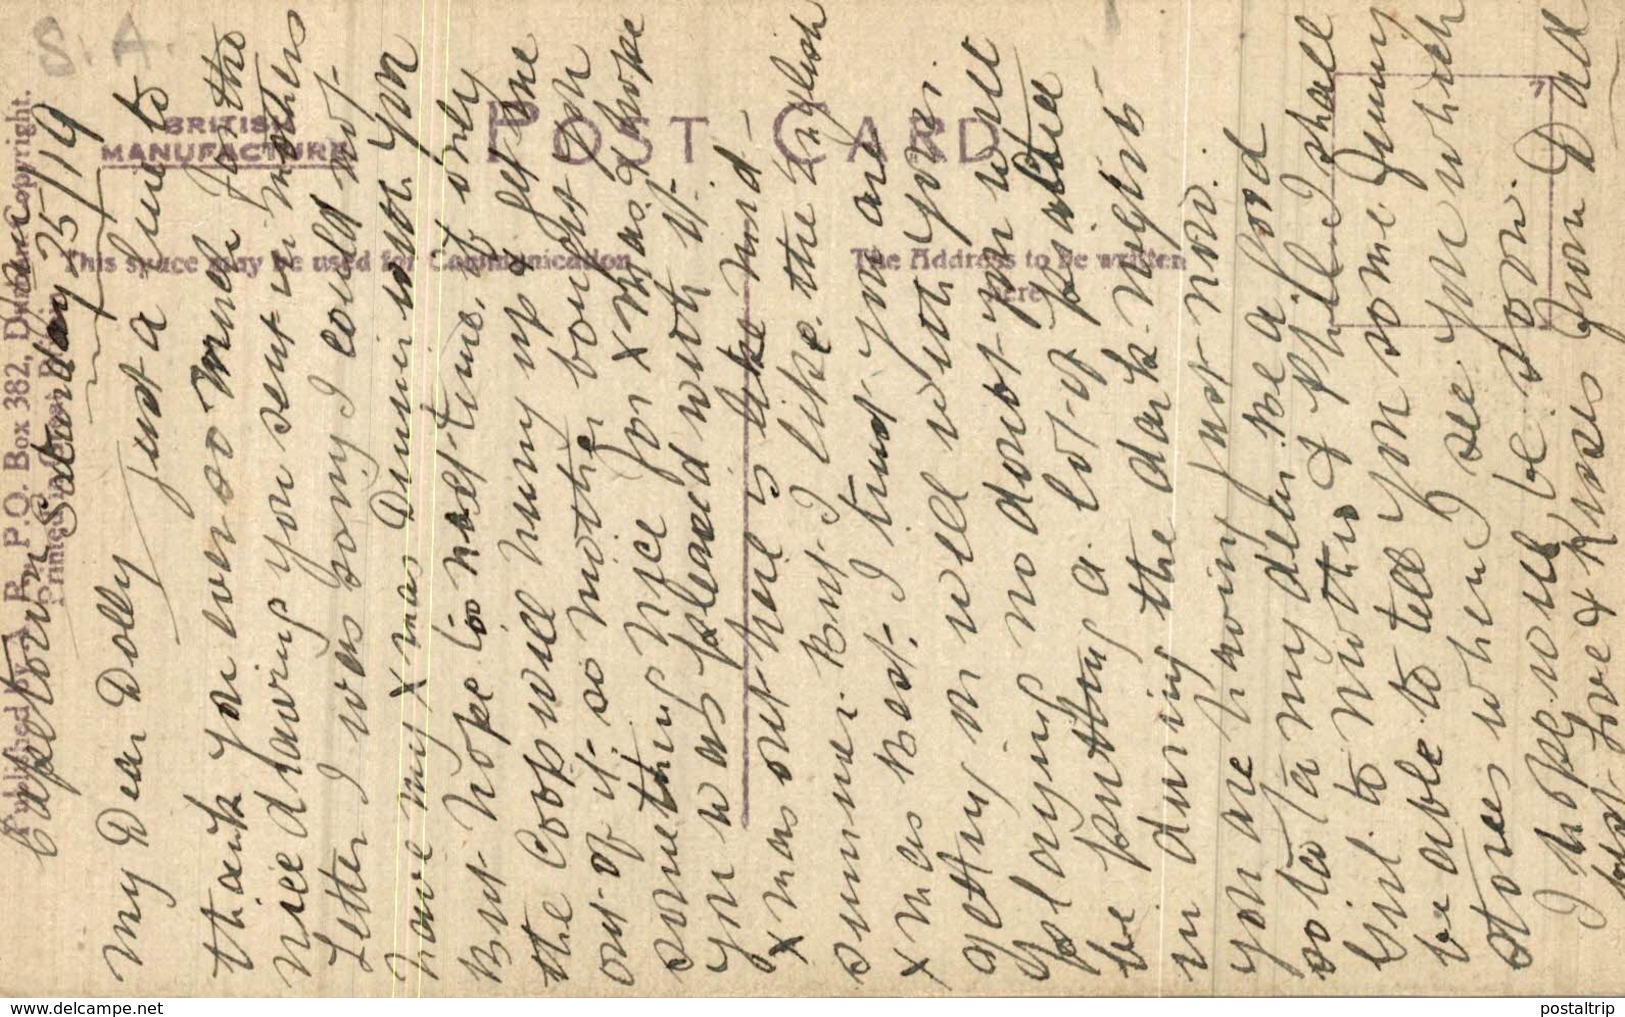 S. A.
Published by R. P.O. Box 382, Copyright.
BRITISH
MANUFACTURE
POST CARD
This space may be used for Communication
The Address to be written
here
7
Capetown Saturday 25/19
My Dear Dolly just a line to
thank you ever so much for the
nice drawing you sent in mothers
Letter I was sorry I could not
have my Xmas Dinner with you
But hope to next time, it only
the Coop will hurry up & get me
out of it. so mother bought you
something nice for Xmas I hope
you was pleased with it.
Xmas out here is like mid
summer. But I like the English
Xmas Best. I trust you are
getting on well with your
playing no doubt you will
be putting a lot of practice
in during the dark nights
you are having just now.
so Ta Ta my dear be a good
Girl to Mother & Phil. I shall
be able to tell you some funny
stories when I see you which
I hope will be soon.
Love & Kisses from Dad
postaltrip
www.delcampe.net